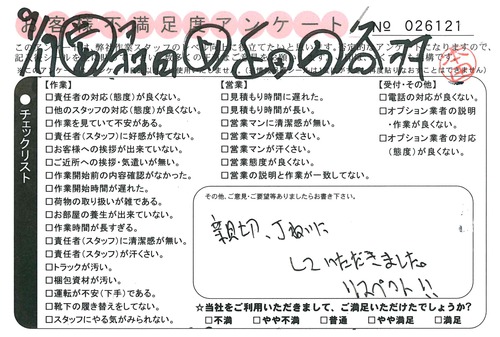 お客様不満足度アンケート
No 026121
チェックリスト
【作業】
□責任者の対応(態度)が良くない。
□他のスタッフの対応(態度)が良くない。
□作業を見ていて不安がある。
□責任者(スタッフ)に好感が持てない。
□お客様への挨拶が出来ていない。
□ご近所への挨拶・気遣いが無い。
□作業開始前の内容確認がなかった。
□作業開始時間が遅れた。
□荷物の取り扱いが雑である。
□お部屋の養生が出来ていない。
□作業時間が長すぎる。
□責任者(スタッフ)に清潔感が無い。
□責任者(スタッフ)が汗くさい。
□トラックが汚い。
□梱包資材が汚い。
□運転が不安(下手)である。
□靴下の履き替えをしてない。
□スタッフにやる気がみられない。
【営業】
□見積もり時間に遅れた。
□見積もり時間が長い。
□営業マンに清潔感が無い。
□営業マンが煙草くさい。
□営業マンが汗くさい。
□営業態度が良くない。
□営業の説明と作業が一致してない。
【受付・その他】
□電話の対応が良くない。
□オプション業者の説明
・作業が良くない。
□オプション業者の対応
(態度)が良くない。
その他、ご意見・ご要望等ありましたらお書き下さい。
親切、丁ねいに
していただきました。
リスペクト!!
☆当社をご利用いただきまして、ご満足いただけたでしょうか?
□不満 □やや不満 □普通 □やや満足 □満足